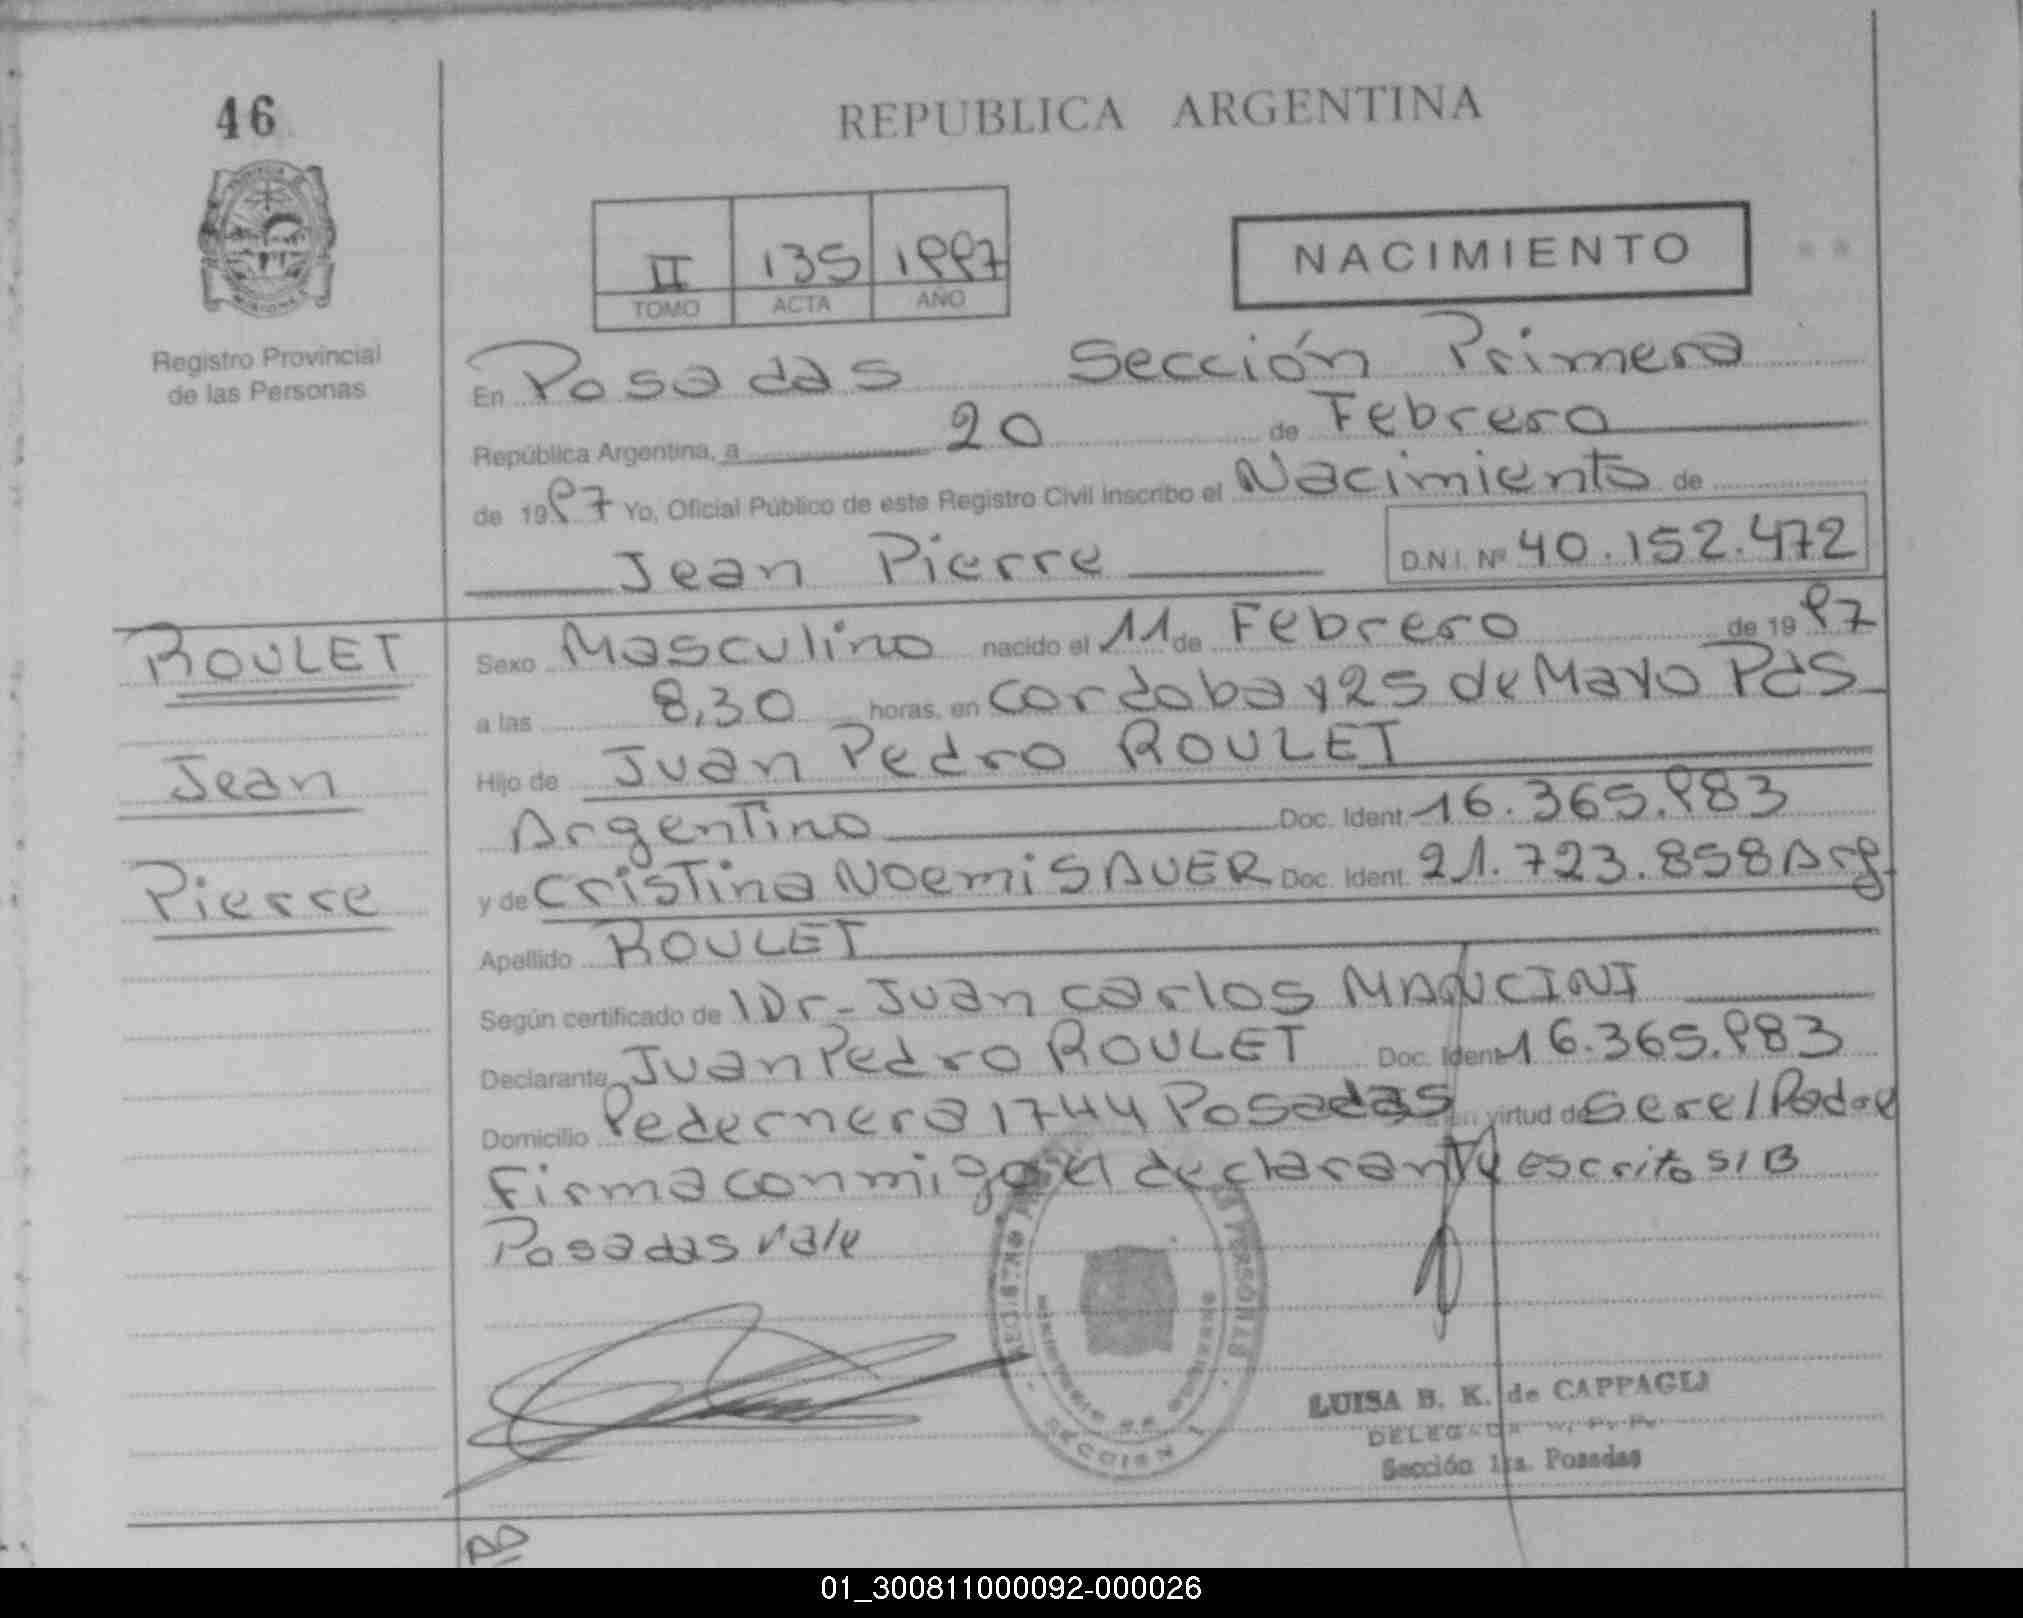 46
REPUBLICA ARGENTINA
II 135 1997
TOMO ACTA AÑO
NACIMIENTO
Registro Provincial
de las Personas
En Posadas Sección Primera
República Argentina, a 20 de Febrero
de 1997 Yo, Oficial Público de este Registro Civil inscribo el Nacimiento de
Jean Pierre D.N.I. Nº 40.152.472
ROULET
Jean
Pierre
Sexo Masculino nacido el 11 de Febrero de 1997
a las 8,30 horas, en Cordoba y 25 de Mayo Pds
Hijo de Juan Pedro ROULET
Argentino Doc. Ident. 16.365.983
y de Cristina Noemi SAUER Doc. Ident. 21.723.858 Arg.
Apellido ROULET
Según certificado de Dr- Juan Carlos MANCINI
Declarante Juan Pedro ROULET Doc. Ident. 16.365.983
Domicilio Pedernera 1744 Posadas en virtud de ser el Padre
Firma conmigo el declarante escrito S/B
Posadas vale
REGISTRO PERSONAS
MINISTERIO DE GOBIERNO
SECCION 1
LUISA B. K. de CAPPAGLI
Sección 1ra. Posadas
01_300811000092-000026